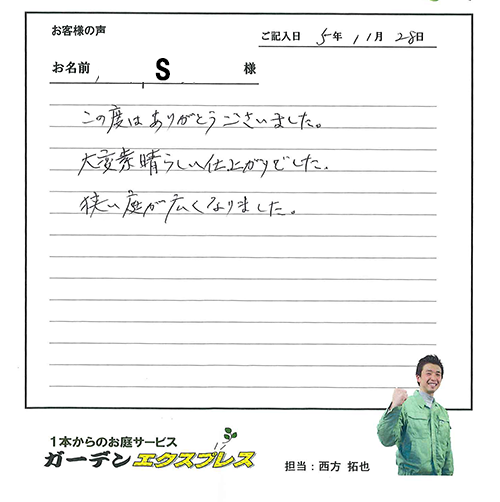 お客様の声
ご記入日 5年 11月 28日
お名前 S 様
この度はありがとうございました。
大変素晴らしい仕上がりでした.
狭い庭が広くなりました。
1本からのお庭サービス
ガーデンエクスプレス
担当：西方 拓也